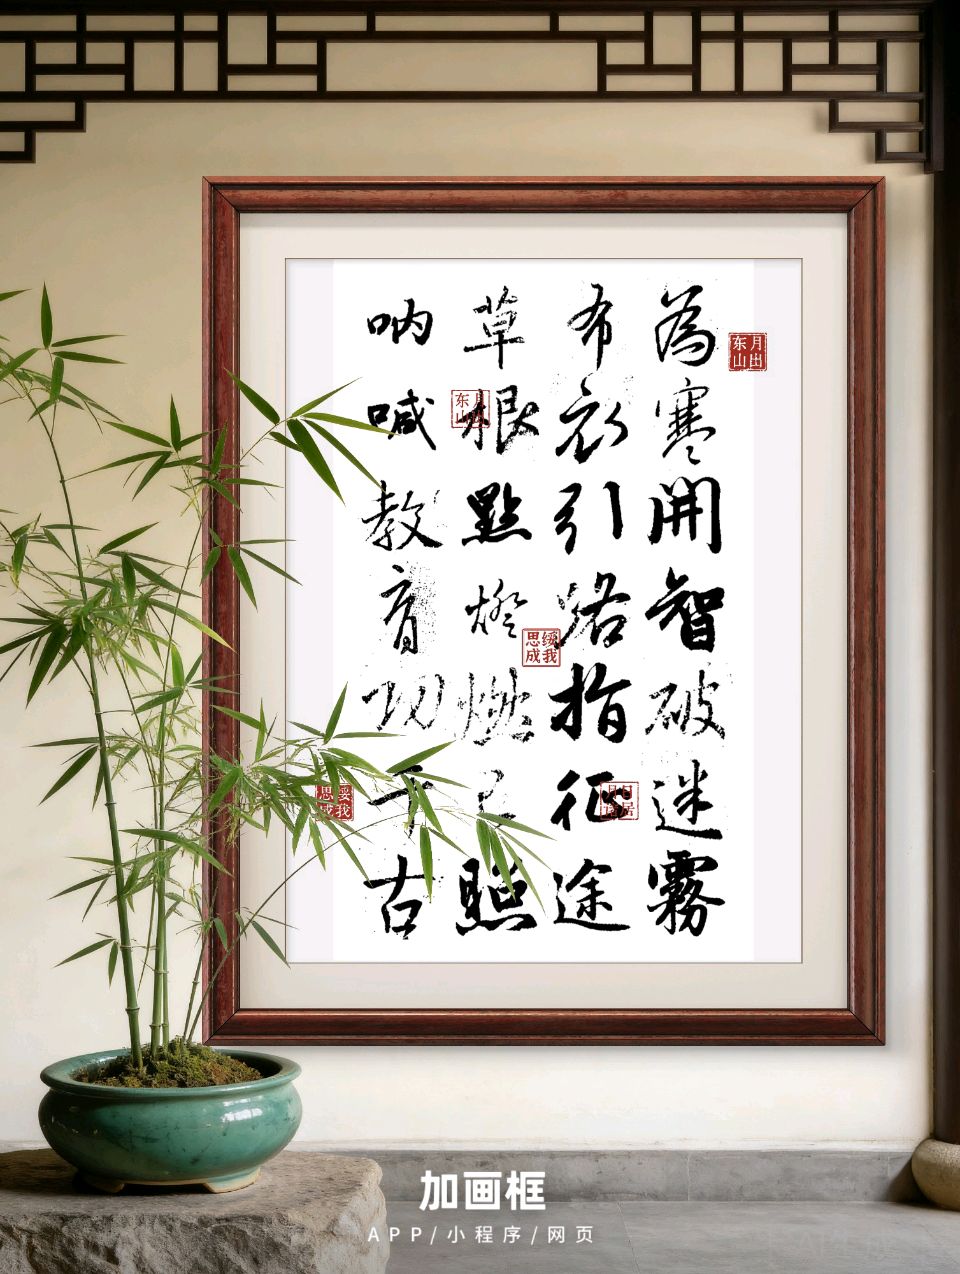 為寒開智破迷霧
布衣引路指征途
草根點燈燃己照
呐喊教育功千古
月出东山
月出东山
绥我思成
绥我思成
加画框
APP/小程序/网页